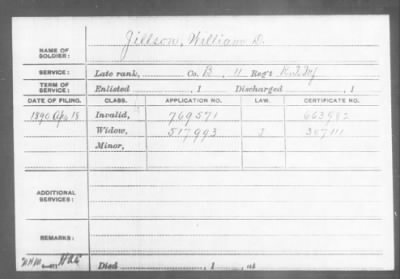 NAME OF SOLDIER: Jillson, William D.
SERVICE: Late rank, Co. B, 11 Reg't R.I. Inf
TERM OF SERVICE: Enlisted , 1 Discharged , 1
DATE OF FILING. CLASS. APPLICATION NO. LAW. CERTIFICATE NO.
1890 Apr 18 Invalid, 769571 663982
Widow, 517993 307111
Minor,
ADDITIONAL SERVICES:
REMARKS:
Died , 1